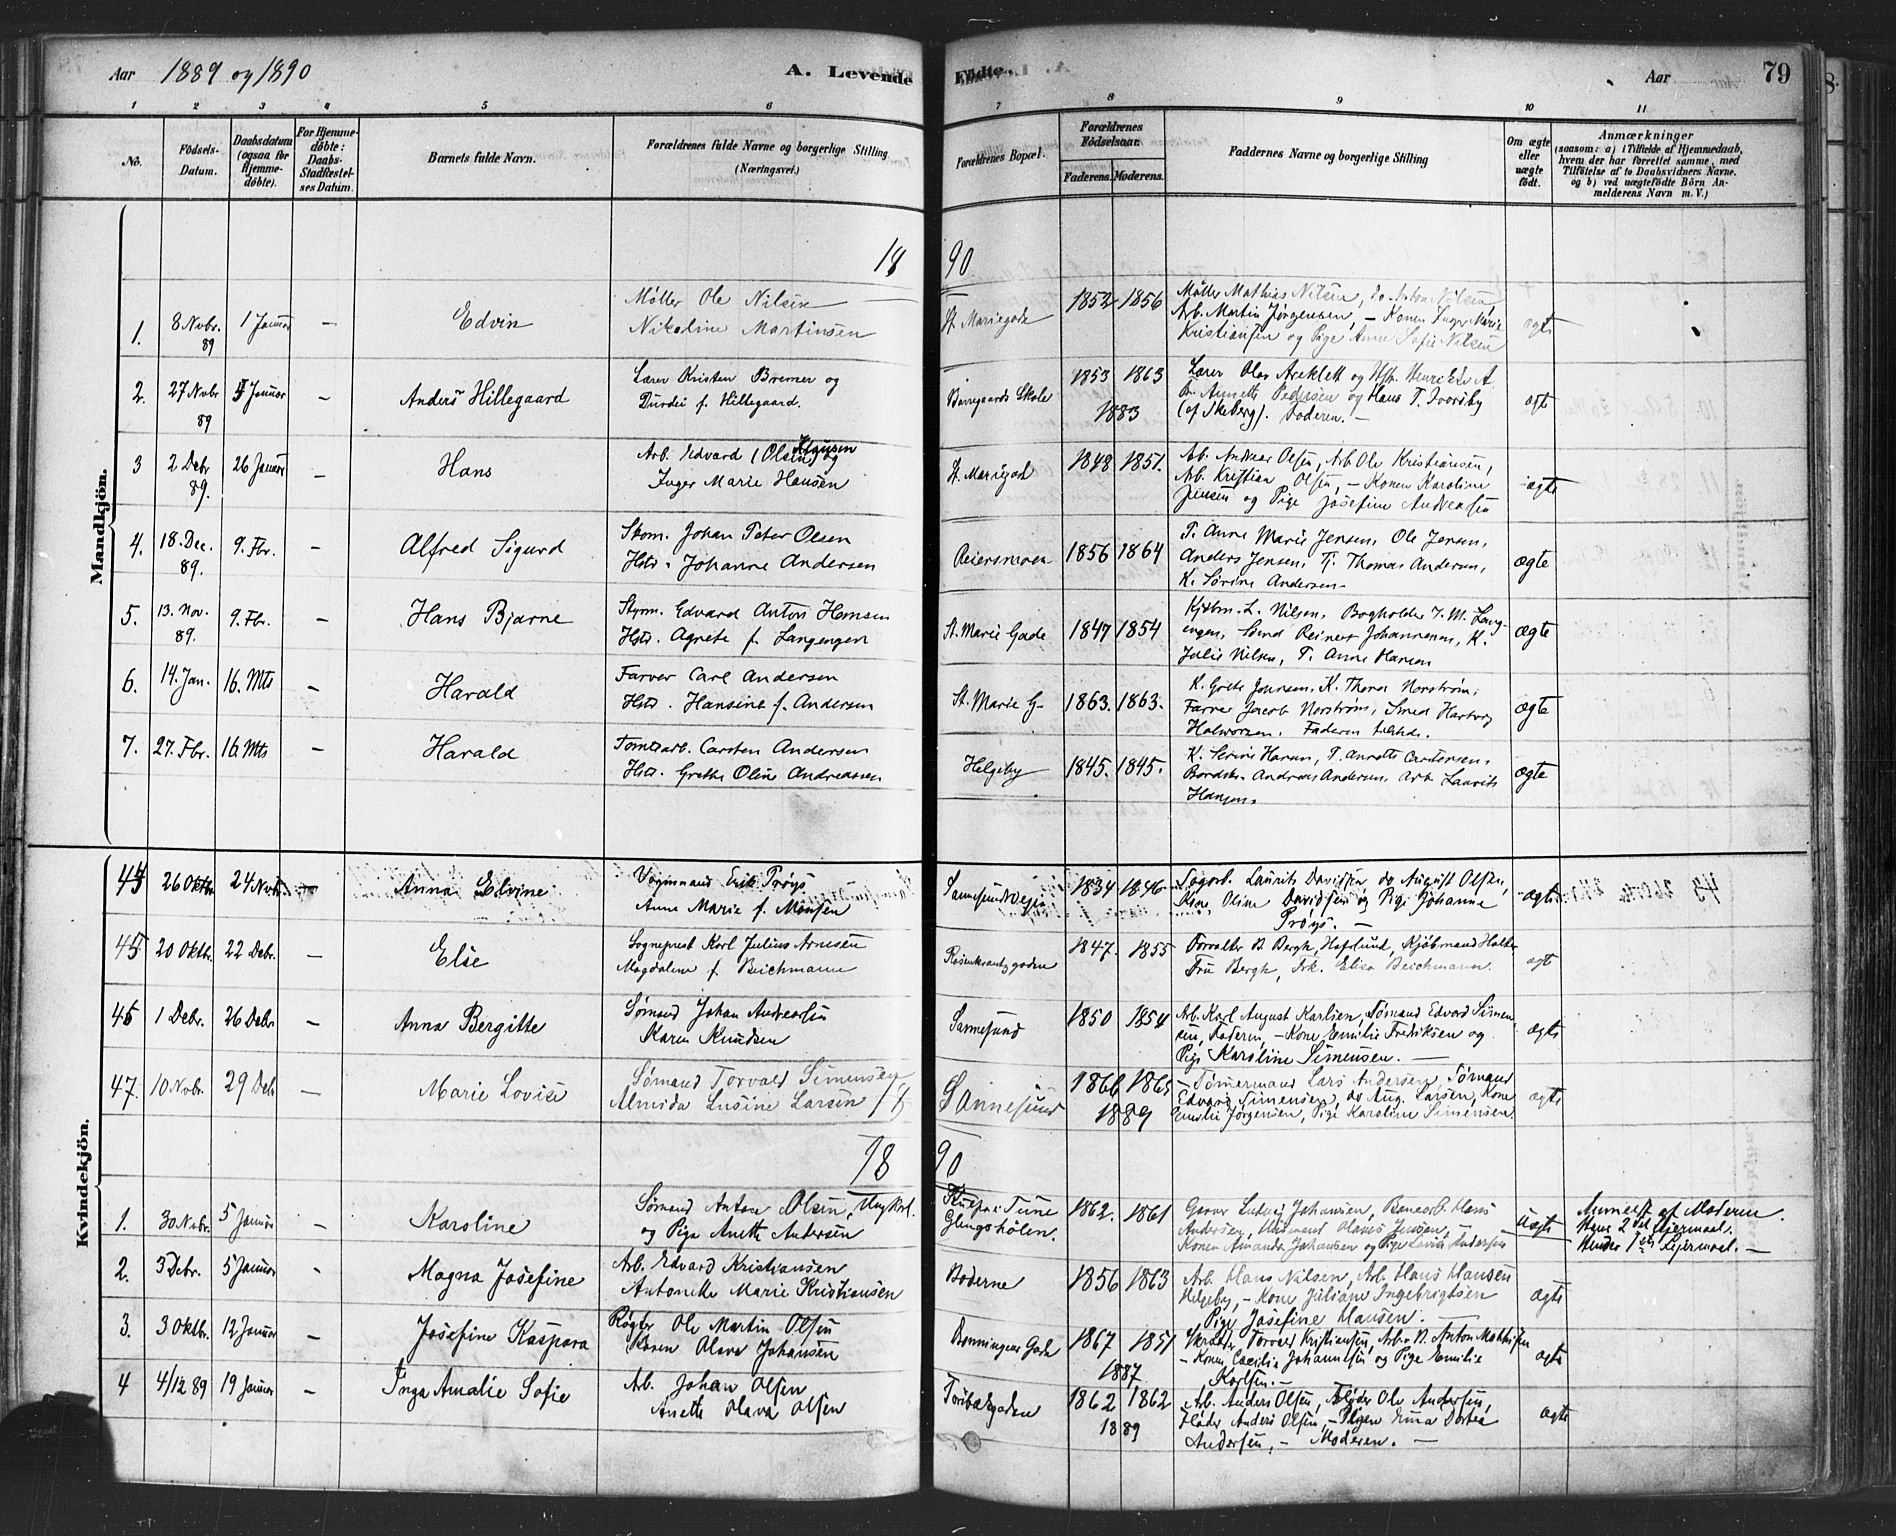 Aar 1889 og 1890
A. Levende
Fødte.
Aar
79
1 2 3 4 5 6 7 8 9 10 11
No.
Fødsels-
Datum.
Daabsdatum
(ogsaa for
Hjemme-
døbte).
For Hjemme-
døbte:
Daabs-
Stadfæstel-
ses Datum.
Barnets fulde Navn.
Forældrenes fulde Navne og borgerlige Stilling
(Næringsvei.)
Forældrenes Bopæl.
Forældrenes
Fødselsaar.
Faderens. Moderens.
Faddernes Navne og borgerlige Stilling
Om ægte
eller
uægte
født.
Anmærkninger
(saasom: a) i Tilfælde af Hjemmedaab,
hvem der har forrettet samme, med
Tilføielse af to Daabsvidners Navne.
og b) ved uægtefødte Børn An-
melderens Navn m. V.)
Mandkjøn.
18 90
1. 8 Nvbr. 89 1 Januar – Edvin
Møller Ole Nilsen
Nikoline Martinsen
St. Mariegade 1852 1856
Møller Mathias Nilsen, do Anton Nilsen,
Arb. Martin Jørgensen, – Konen Inger Marie
Kristiansen og Pige Anne Sofie Nilsen
ægte
2. 27 Nvbr 89 5 Januar – Anders Hillegaard
Lærer Kristen Bremer og
Durdei f. Hillegaard.
Borregaards Skole 1853 1863
1883
Lærer Olav Areklett og Hst. Henrikke A
Annette Pedersen og Hans T.
(af Skeberg). Faderen. –
ægte
3 2 Debr 89. 26 Januar – Hans
Arb. Edvard (Olsen) Klausen og
Inger Marie Hansen
St. Mariegad 1848 1851.
Arb. Andreas Olsen, Arb. Ole Kristiansen,
Arb. Kristian Olsen, – Konen Karoline
Jensen og Pige Josefine Andreassen
ægte
4. 18. Dec. 89. 9. Fbr. – Alfred Sigurd
Skom. Johan Peter Olsen
Hstr. Johanne Andersen
Reiersmoen 1856 1864
P. Anne Marie Jensen, Ole Jensen,
Anders Jensen, Tj. Thomas Andersen,
K. Sørine Andersen.
ægte
5. 13. Nov. 89. 9. Fbr. – Hans Bjarne
Styrm. Edvard Anton Hansen
Hstr. Agnete f. Langengen
St. Marie Gade 1847 1854
Kjøbm. L. Nilsen, Bogholder J. M. Lang-
engen, Smed Reinert Johannesen, K.
Julie Nilsen, P. Anne Hansen
ægte
6. 14. Jan. 16. Mts – Harald
Farver Carl Andersen
Hstr. Hansine f. Andersen
St. Marie G. 1863. 1863.
K. Grete Jonnsen, K. Thora Norstrøm,
Farver Jacob Norstrøm, Smed Hartvig
Halvorsen. Faderen tilstede.
ægte
7. 27. Fbr. 16. Mts – Harald
Tomtearb. Carsten Andersen
Hstr. Grethe Oline Andreassen
Helgeby 1845. 1845.
K. Serine Hansen, P. Annette Carstensen,
Bordstr. Andreas Andersen, Arb Laurits
Hansen.
ægte
Kvindekjøn.
44 26 Oktbr 24 Nvbr – Anna Elvine
Vognmand Erik Prøys
Anne Marie f. Monsen
Sannesundveien 1834 1846
Sagarb. Laurits Davidsen, do August Olsen,
Kone Oline Davidsen og Pige Johanne
Prøys. –
ægte
45 20 Oktbr. 22 Debr. – Else
Sogneprest Karl Julius Arnesen
Magdalene f. Beichmann
Rosenkrantzgaden 1847. 1855
Forvalter B. Bergh, Hafslund, Kjøbmand Holter
Fru Bergh, Frk. Elisa Beichmann.
ægte
46 1 Debr. 26 Debr – Anna Bergitte
Sømand Johan Andreassen
Karen Knudsen
Sannesund 1850 1854
Arb. Karl August Karlsen, Sømand Edvard Simen-
sen, Faderen, – Kone Emilie Fredriksen og
Pige Karoline Simensen. –
ægte
47. 10 Nvbr. 29 Debr – Marie Lovise
Sømand Torvald Simensen
Almida Lusine Larsen
Sannesund 1866 1865
1889
– Tømermand Lars Andersen, Sømand
Edvard Simensen, do Aug. Larsen, Kone
Emilie Jørgensen, Pige Karoline Simensen.
ægte
18 90
1. 30 Nvbr. 5 Januar – Karoline
Sømand Anton Olsen, Ungkarl.
og Pige Anette Andersen
Tune
Glengshølen. 1862. 1861
Garver Ludvig Johansen, Banearb. Hans
Andersen, Olaves Jensen, –
Konen Amanda Johansen og Pige Lovise Andersen
Uægte
Anmeldt af Moderen.
Hans 2det Leiermaal.
Hendes 1ste Leiermaal. –
2. 3 Debr. 5 Januar – Magna Josefine
Arb. Edvard Kristiansen
Antonette Marie Kristiansen
Boderne 1856 1863
Arb. Hans Nilsen, Arb. Hans Hansen
Helgeby, – Kone Juliane Ingebrigtsen
Pige Josefine Hansen. –
ægte
3. 3 Oktbr. 12 Januar – Josefine Kaspara
Røgter Ole Martin Olsen
Karen Olava Johansen
Gade 1867 1851
1887
Skrædder Torvald Kristiansen, Arb. B. Anton Mathisen
– Konen Cecilia Johannesen og Pige Emilie
Karlsen. –
ægte
4 4/12 89 19 Januar – Inga Amalie Sofie
Arb. Johan Olsen
Anette Olava Olsen
1862 1862
1889
Arb. Anders Olsen, Fløder Ole Andersen,
Fløder Anders Olsen, – Pigen Emma Dortea
Andersen, – Moderen. –
ægte